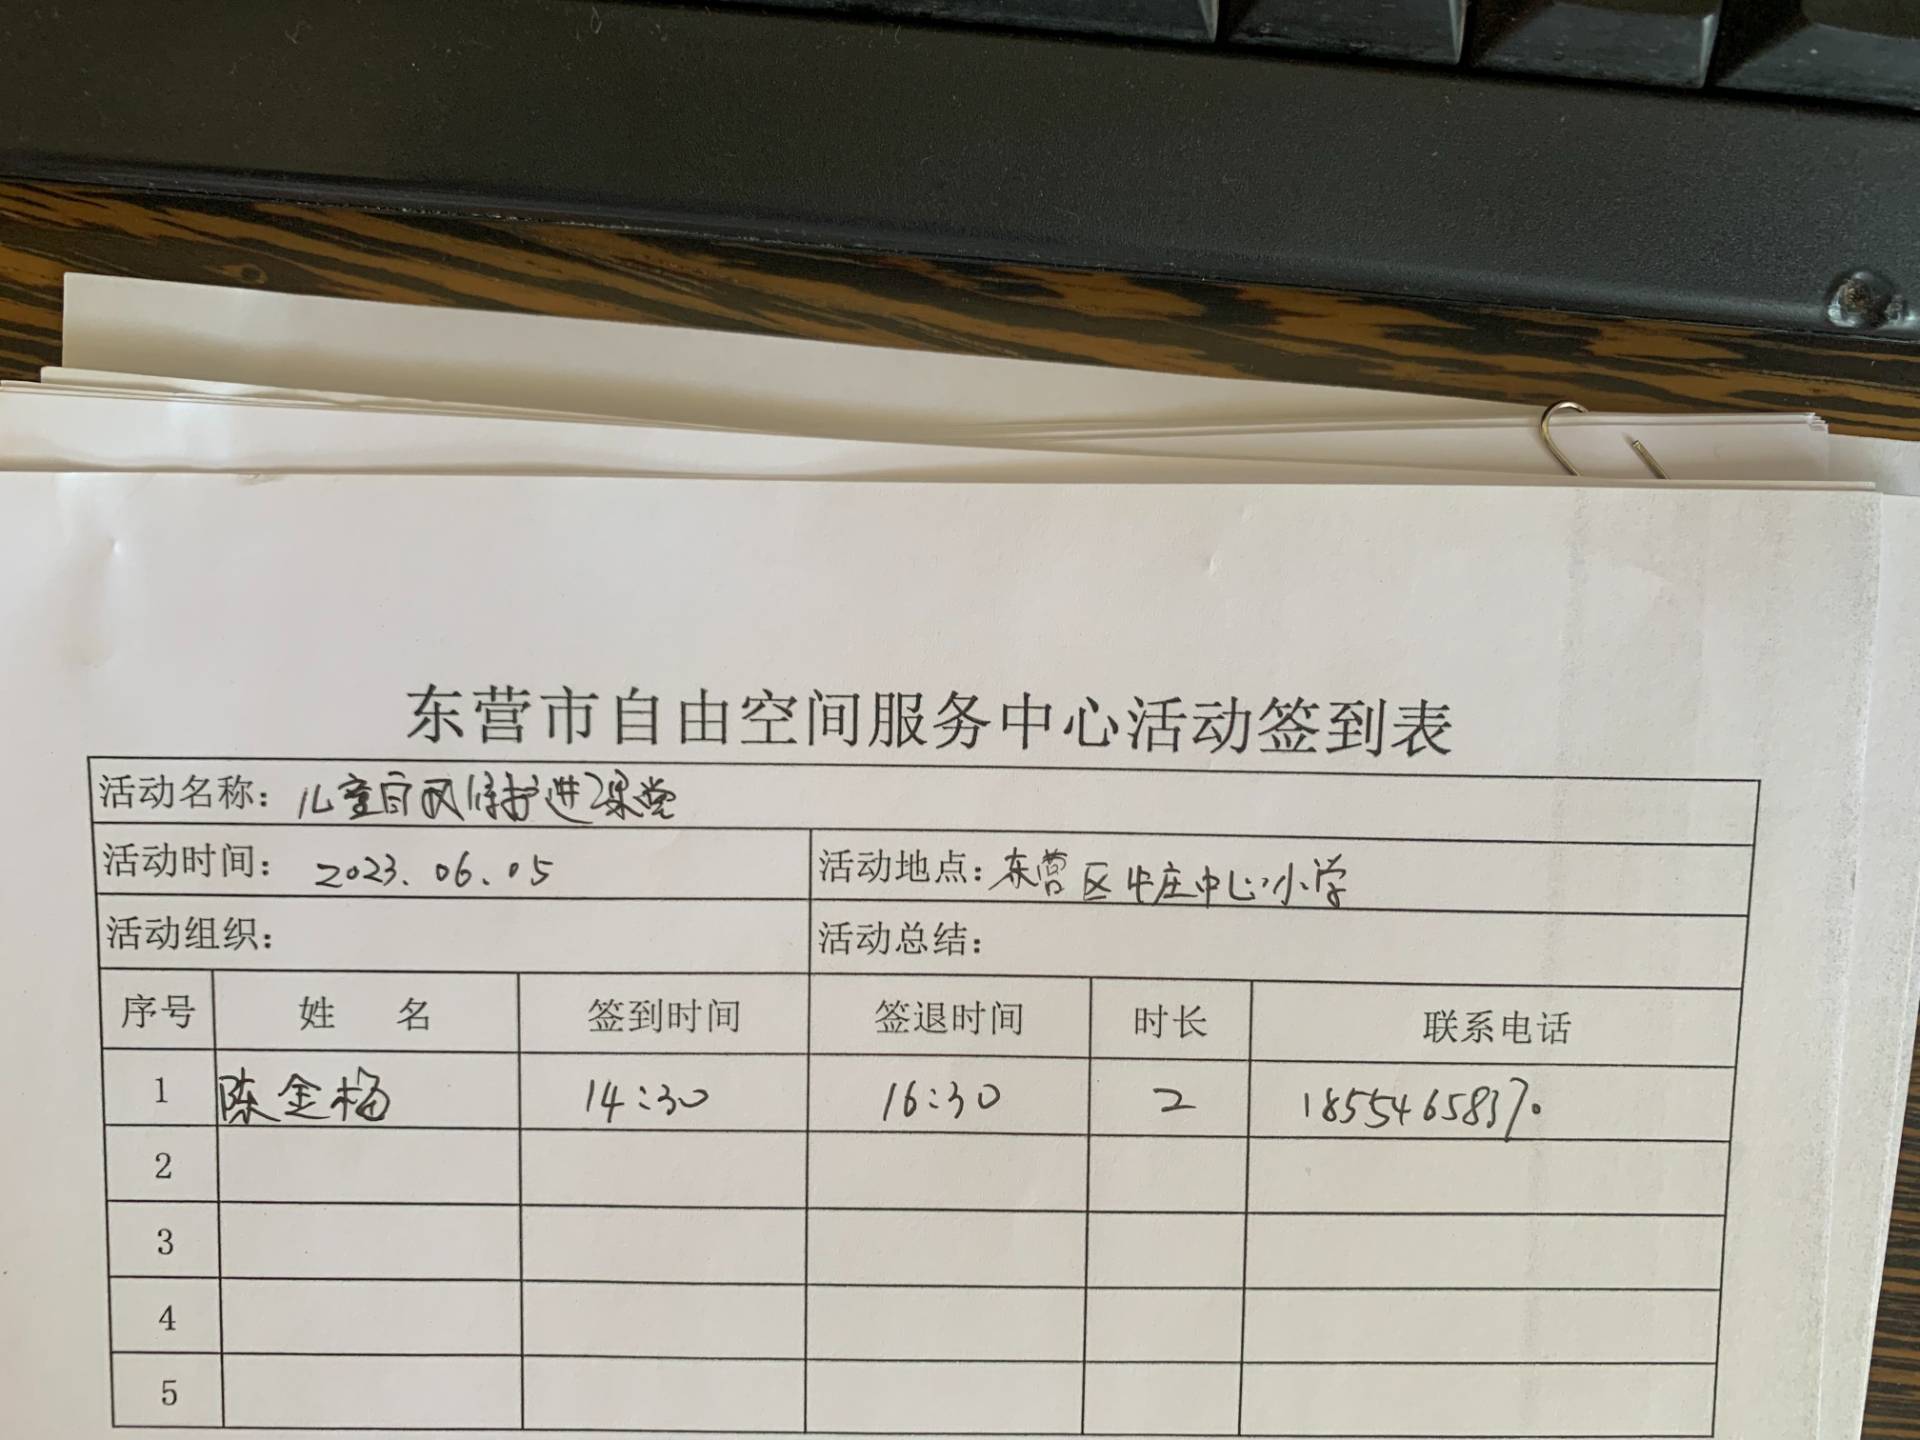 东营市自由空间服务中心活动签到表
活动名称: 儿童自我保护进课堂
活动时间: 2023.06.05 活动地点: 东营区牛庄中心小学
活动组织: 活动总结:
序号 姓 名 签到时间 签退时间 时长 联系电话
1 陈金梅 14:30 16:30 2 18554658370
2
3
4
5